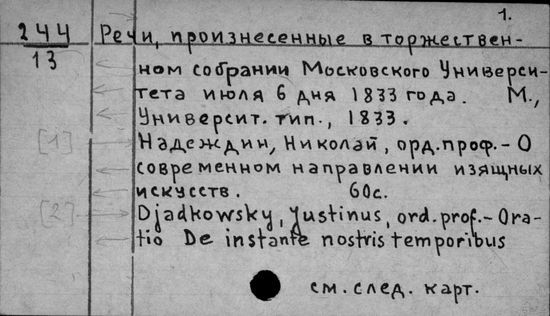 1.
244 Речи, произнесенные в торжествен-
13
ном собрании Московского Универси-
тета июля 6 дня 1833 года. М.,
Университ. тип., 1833.
[1] Надеждин, Николай, орд. проф. - О
современном направлении изящных
искусств. 60с.
[2] Djadkowsky, Yustinus, ord. prof. - Ora-
tio De instante nostris temporibus
см. след. карт.